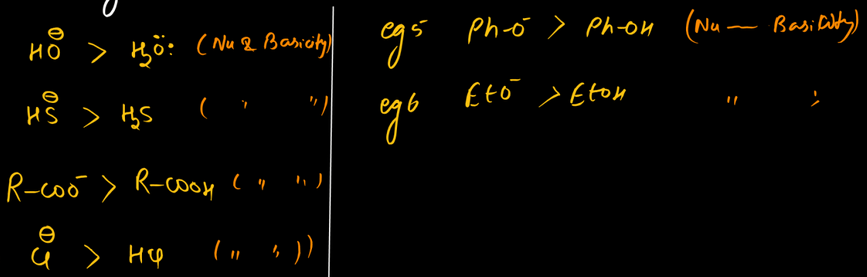 HO⊖ > H₂Ö: (Nu & Basicity)
HS⊖ > H₂S ( " ")
R-COO⁻ > R-COOH ( " ")
Cl⊖ > HCl ( " ")
eg5 Ph-O⁻ > Ph-OH (Nu — Basicity)
eg6 EtO⁻ > EtOH " ;